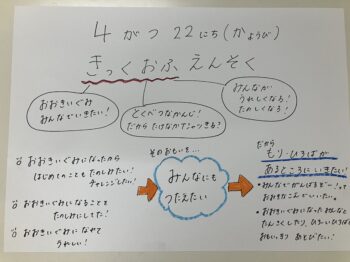 4がつ 22にち(かようび)
きっくおふ えんそく
おおきいぐみ
みんなでいきたい!
とくべつなかんじ!
だから たけなかTシャツきる?
みんなが
うれしくなる!
たのしくなる!
おおきいぐみになったから
はじめてのことも たのしみたい!
チャレンジしたい!
おおきいぐみになることを
たのしみにしてた!
おおきいぐみに なれて
うれしい!
そのおもいを…
みんなにも
つたえたい
だから
もり・ひろばが
あるところにいきたい!
・みんなでがんばるぞー!って
おおきなこえでいいたい。
・おおきいぐみになったみんなと
たんさくしたり、ひろいひろばで
おもいきり あそびたい!